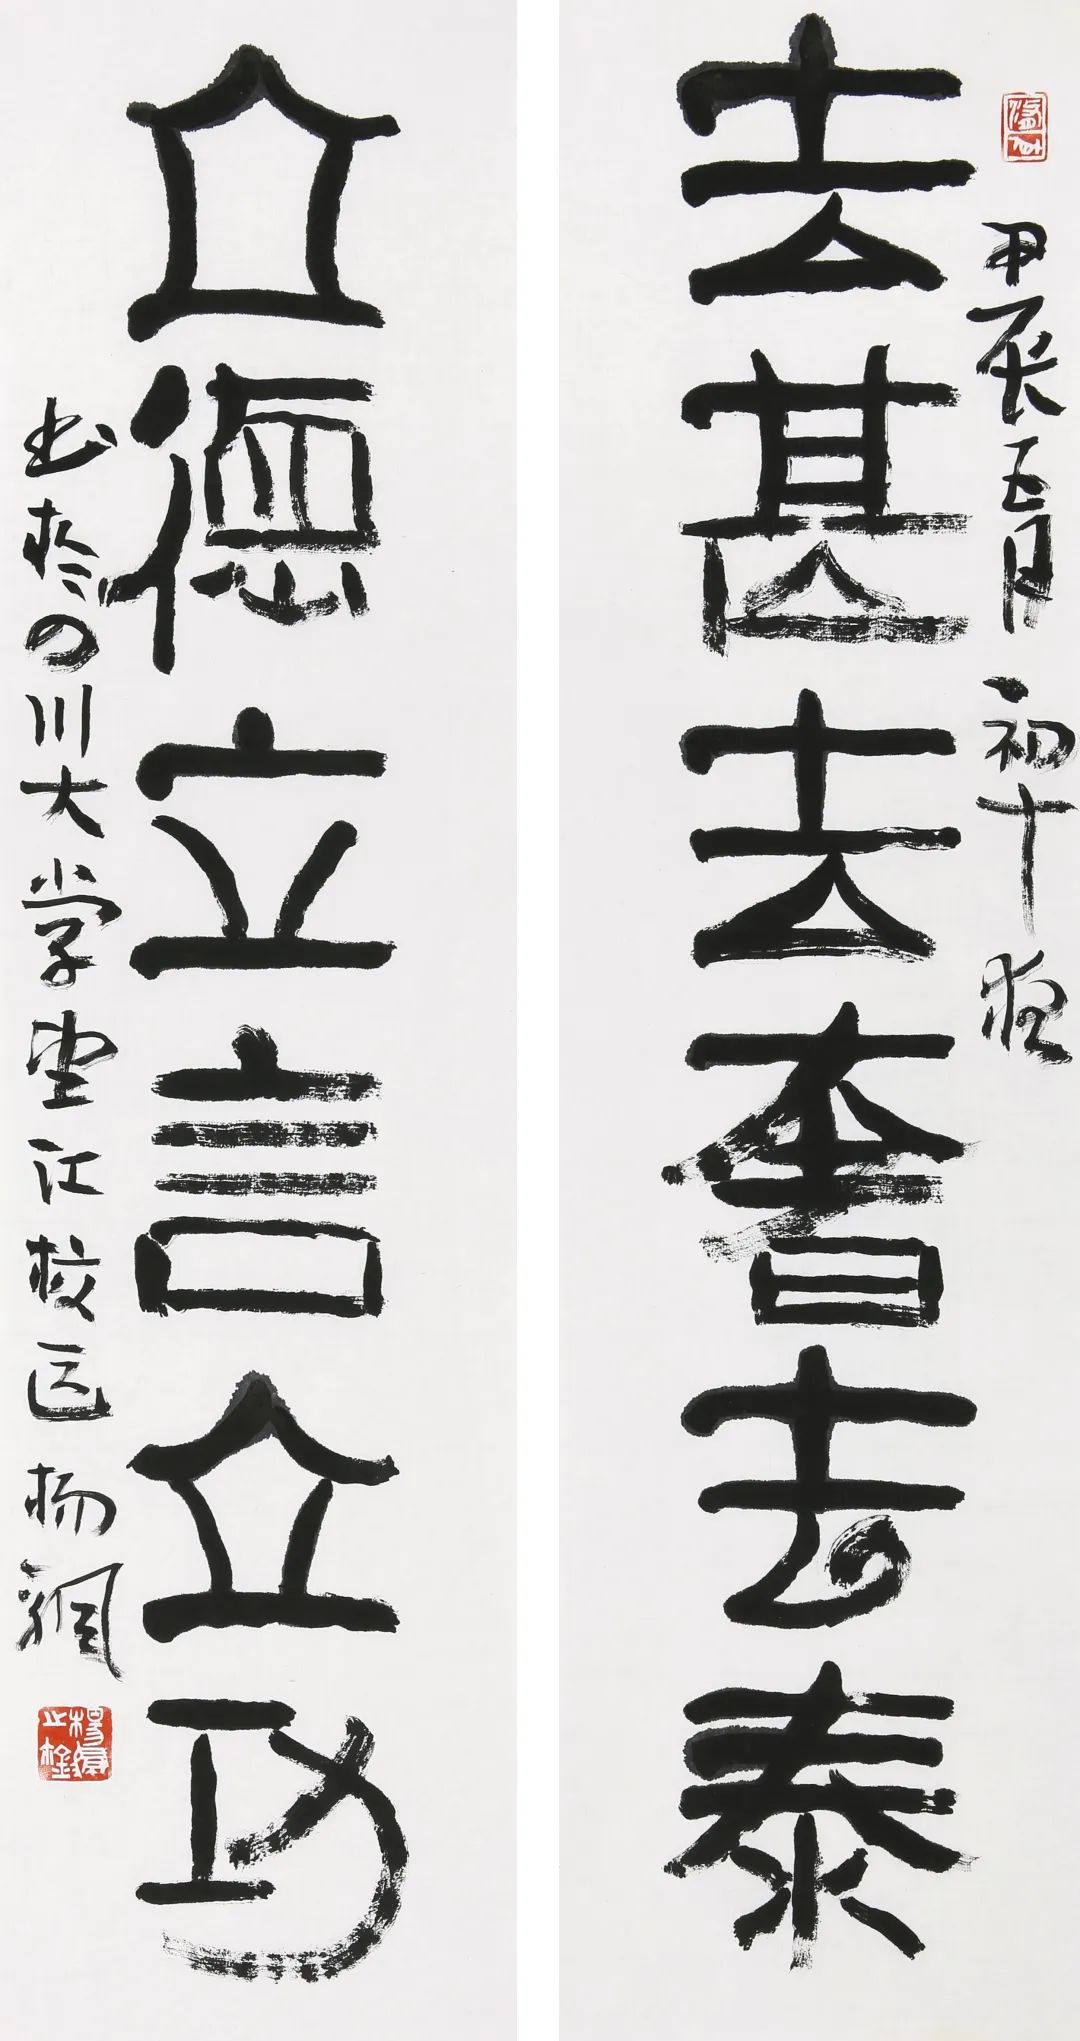 甲辰五月初十夜
去甚去奢去泰
立德立言立功
书於四川大学望江校区 杨